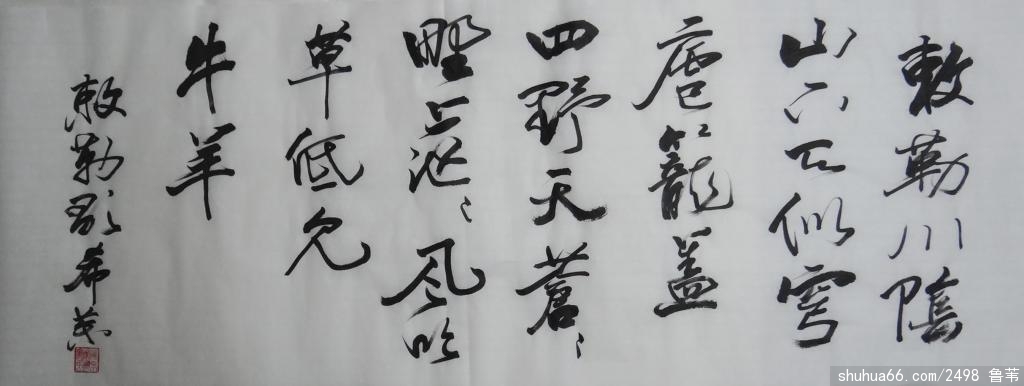 敕勒川陰
山下天似穹
廬籠蓋
四野天蒼〻
野茫〻風吹
草低見
牛羊
敕勒歌 希茂
shuhua66.com/2498 鲁苇